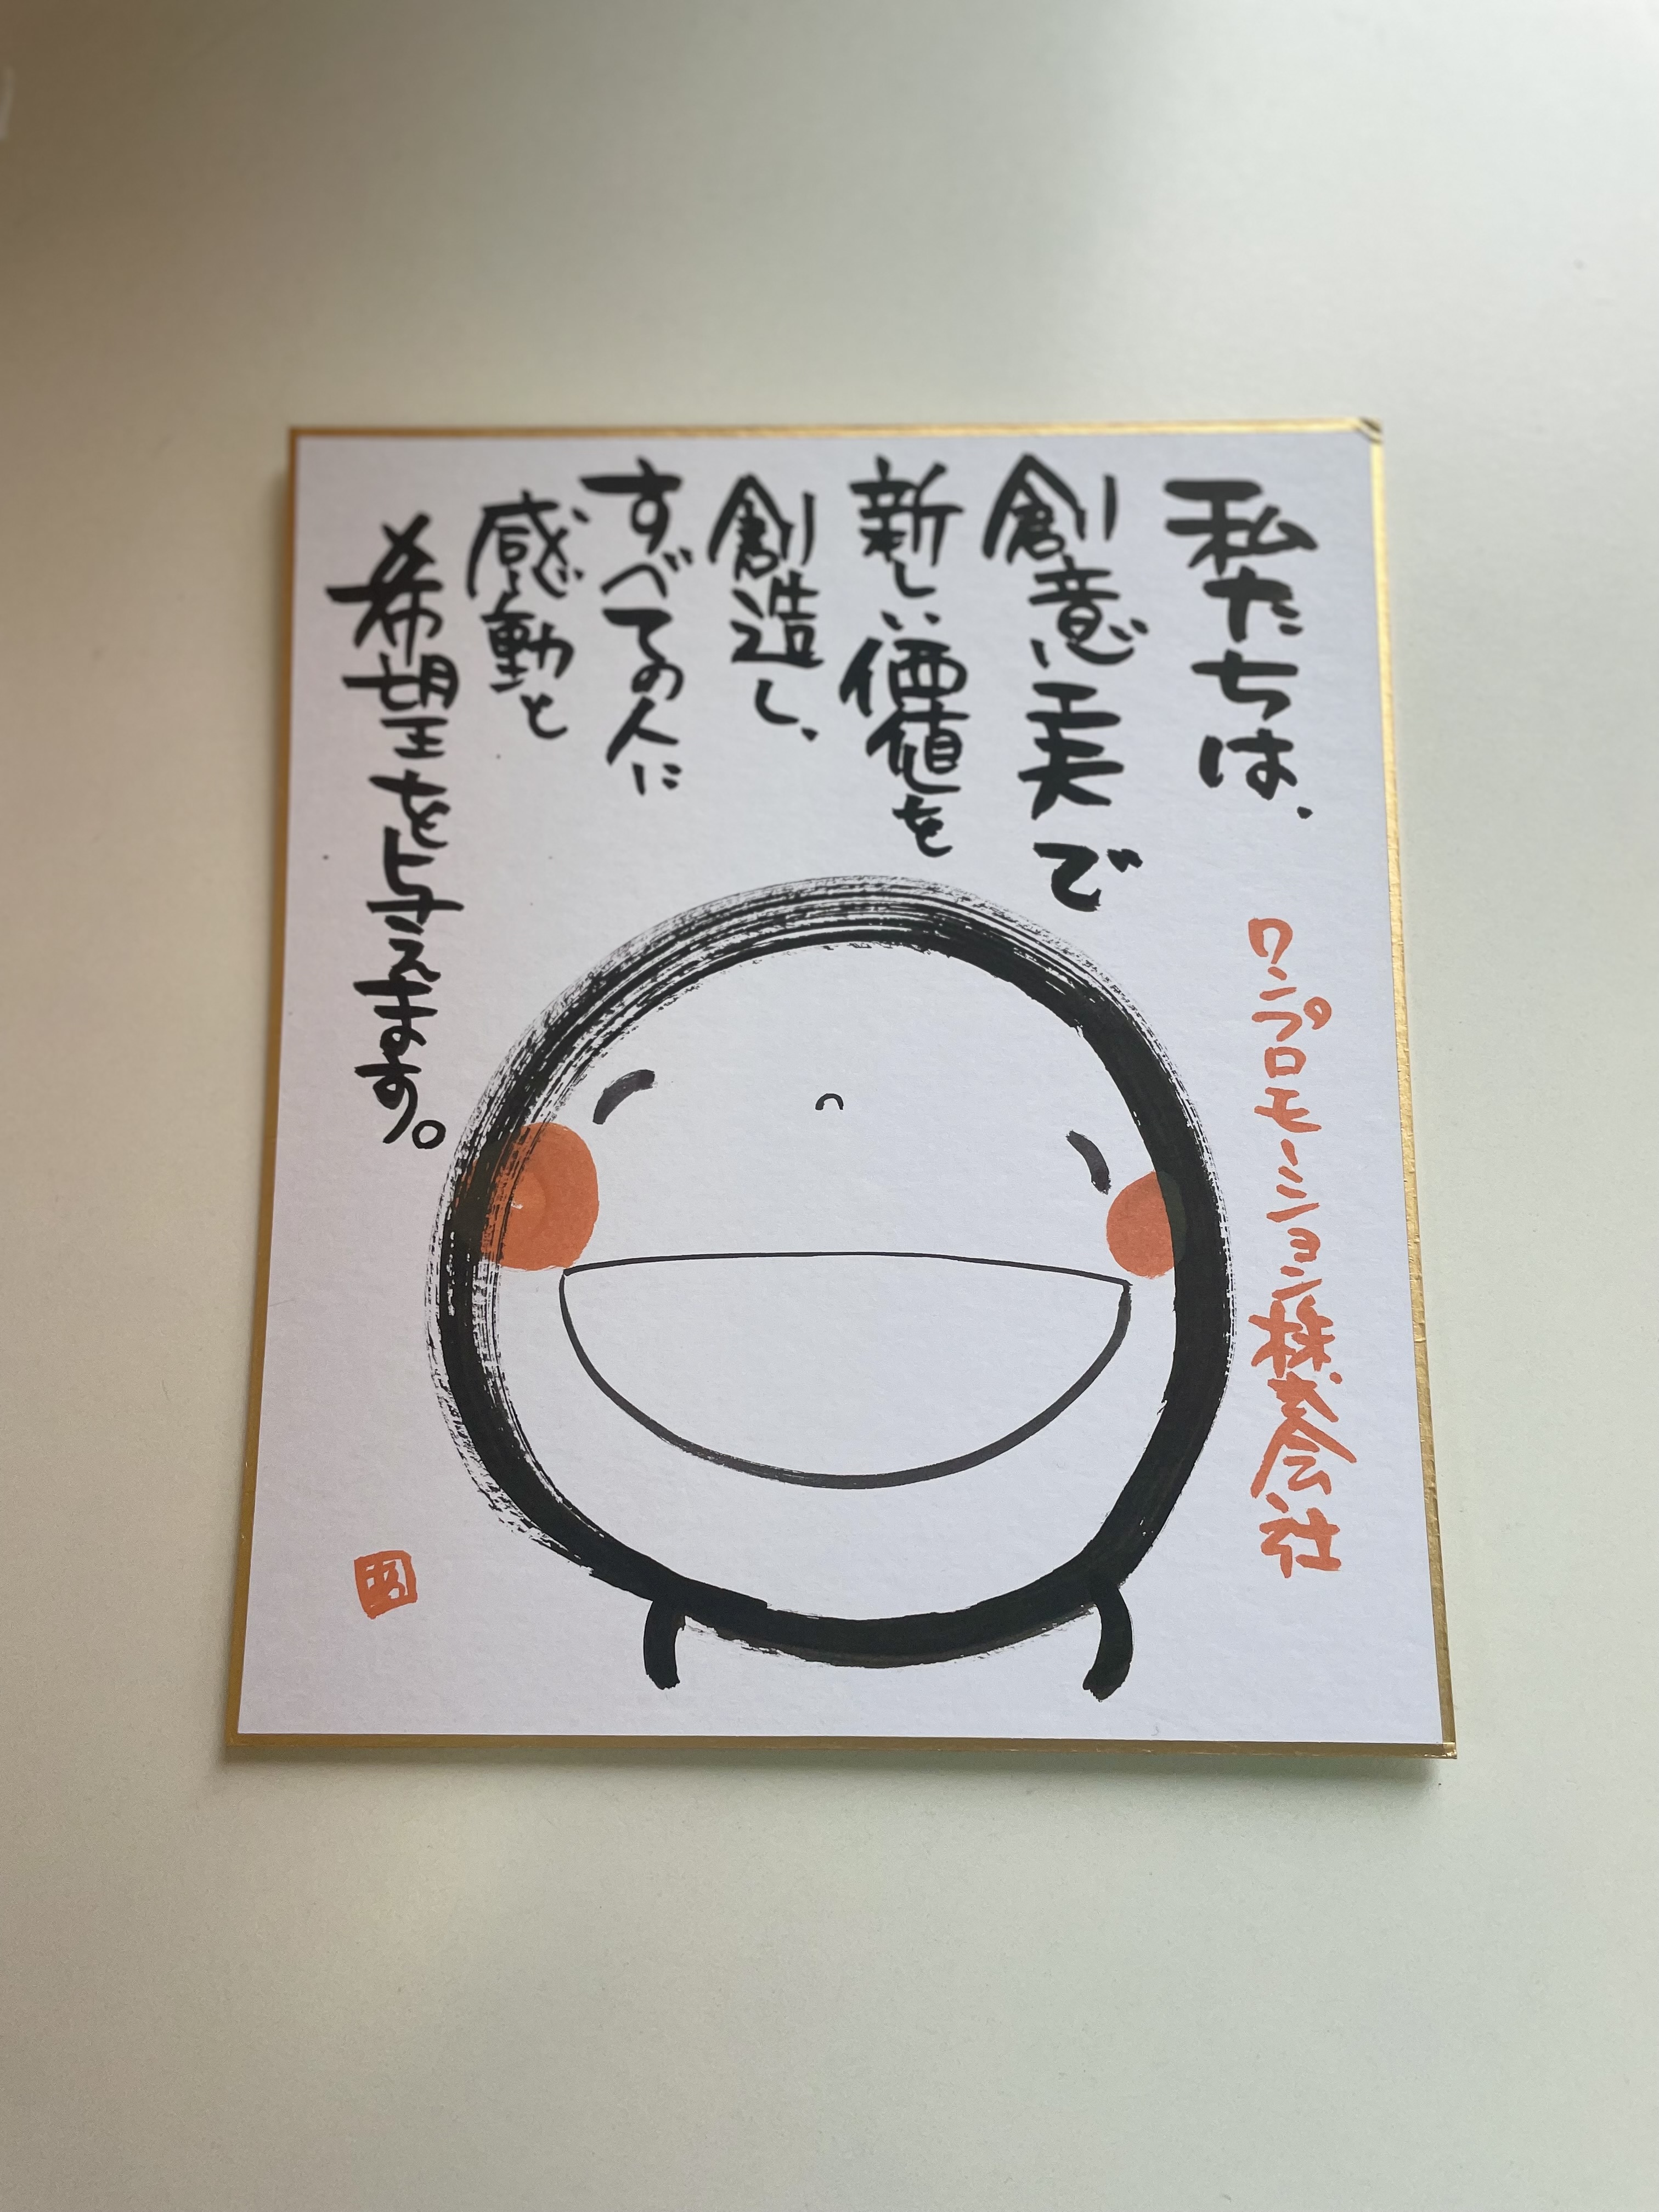 私たちは、
創意工夫で
新しい価値を
創造し、
すべての人に
感動と
希望を与えます。
ワンプロモーション株式会社